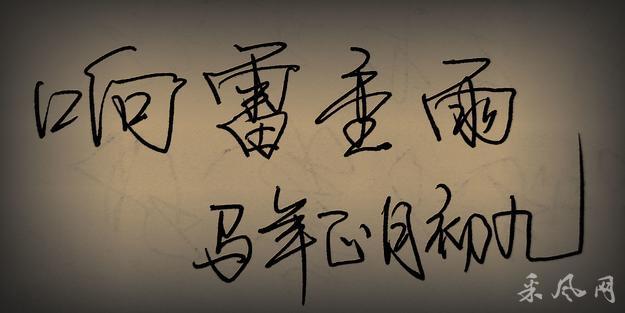 响雷重雨
马年正月初九
采风网